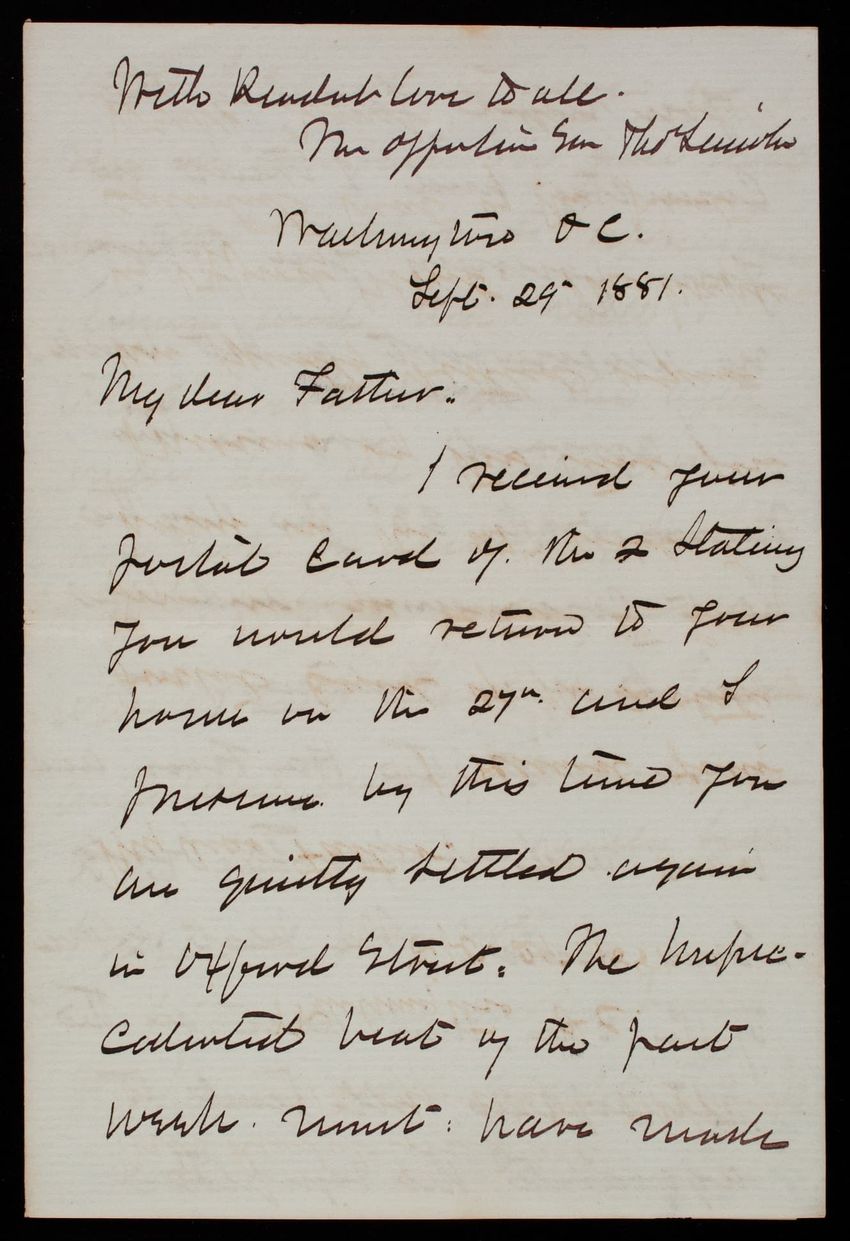 With kindest love to all.
Your affectionate Son Thos Lincoln
Washington D C.
Sept. 29 1881.
My dear Father..
I received your
postal card of. the 2 stating
you would return to your
home on the 27th. and I
presume by this time you
are quietly settled again
in Oxford Street. The unpre-
cedented heat of the past
week. must have made